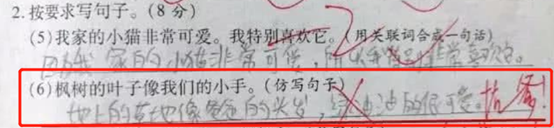 2.按要求写句子。(8分)
(5)我家的小猫非常可爱。我特别喜欢它。(用关联词合成一句话)
因为我家的小猫非常可爱,所以我非常喜欢它。
(6)枫树的叶子像我们的小手。(仿写句子)
地上的草地像爸爸的头发,绿油油的很可爱。